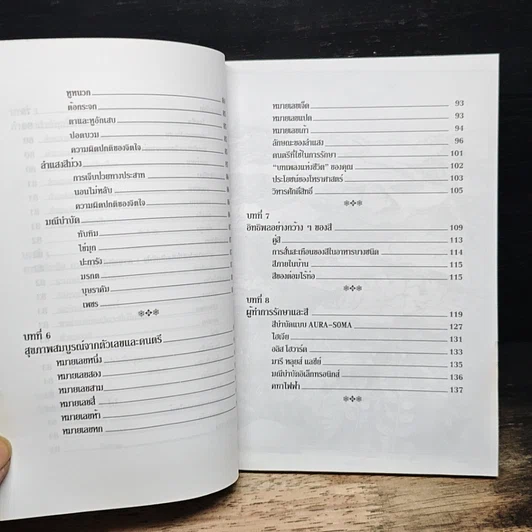 หูหนวก
ต้อกระจก
ตาและหูอักเสบ
ปอดบวม
ความผิดปกติของจิตใจ
ลำแสงสีม่วง
การเจ็บป่วยทางประสาท
นอนไม่หลับ
ความผิดปกติของจิตใจ
มณีบำบัด
ทับทิม
ไข่มุก
ปะการัง
มรกต
บุษราคัม
เพชร
บทที่ 6
สุขภาพสมบูรณ์จากตัวเลขและดนตรี
หมายเลขหนึ่ง
หมายเลขสอง
หมายเลขสาม
หมายเลขสี่
หมายเลขห้า
หมายเลขหก
หมายเลขเจ็ด 93
หมายเลขแปด 93
หมายเลขเก้า 94
ลักษณะของลำแสง 96
ดนตรีที่ใช้ในการรักษา 101
"บทเพลงแห่งชีวิต" ของคุณ 102
ประโยชน์ของโหราศาสตร์ 103
วิหารศักดิ์สิทธิ์ 105
บทที่ 7
อิทธิพลอย่างกว้าง ๆ ของสี 109
คู่สี 113
การสั่นสะเทือนของสีในอาหารบางชนิด 114
สีภายในบ้าน 115
สีของต่อมไร้ท่อ 115
บทที่ 8
ผู้ทำการรักษาและสี 119
สีบำบัดแบบ AURA-SOMA 127
ไฮเจีย 131
อลิส โฮวาร์ด 134
มารี หลุยส์ แลซีย์ 135
มณีบำบัดอิเล็กทรอนิกส์ 136
คทาไฟฟ้า 137